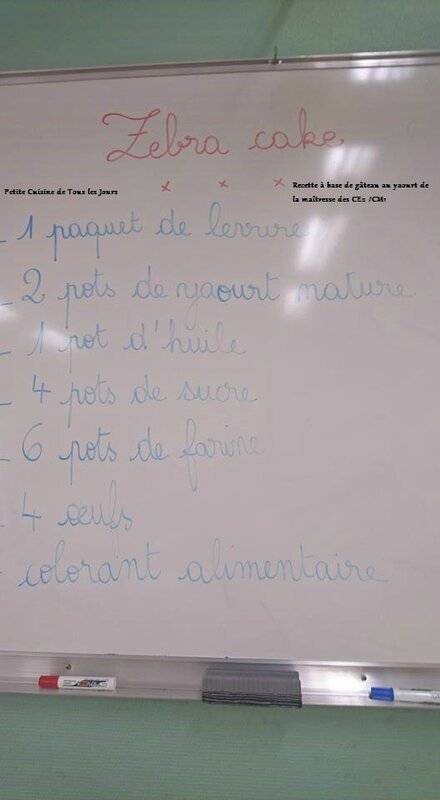 Zebra cake
Petite Cuisine de Tous les Jours
x x x
Recette à base de gâteau au yaourt de
la maîtresse des CE2 /CM1
- 1 paquet de levure
- 2 pots de yaourt nature
- 1 pot d'huile
- 4 pots de sucre
- 6 pots de farine
- 4 œufs
- colorant alimentaire